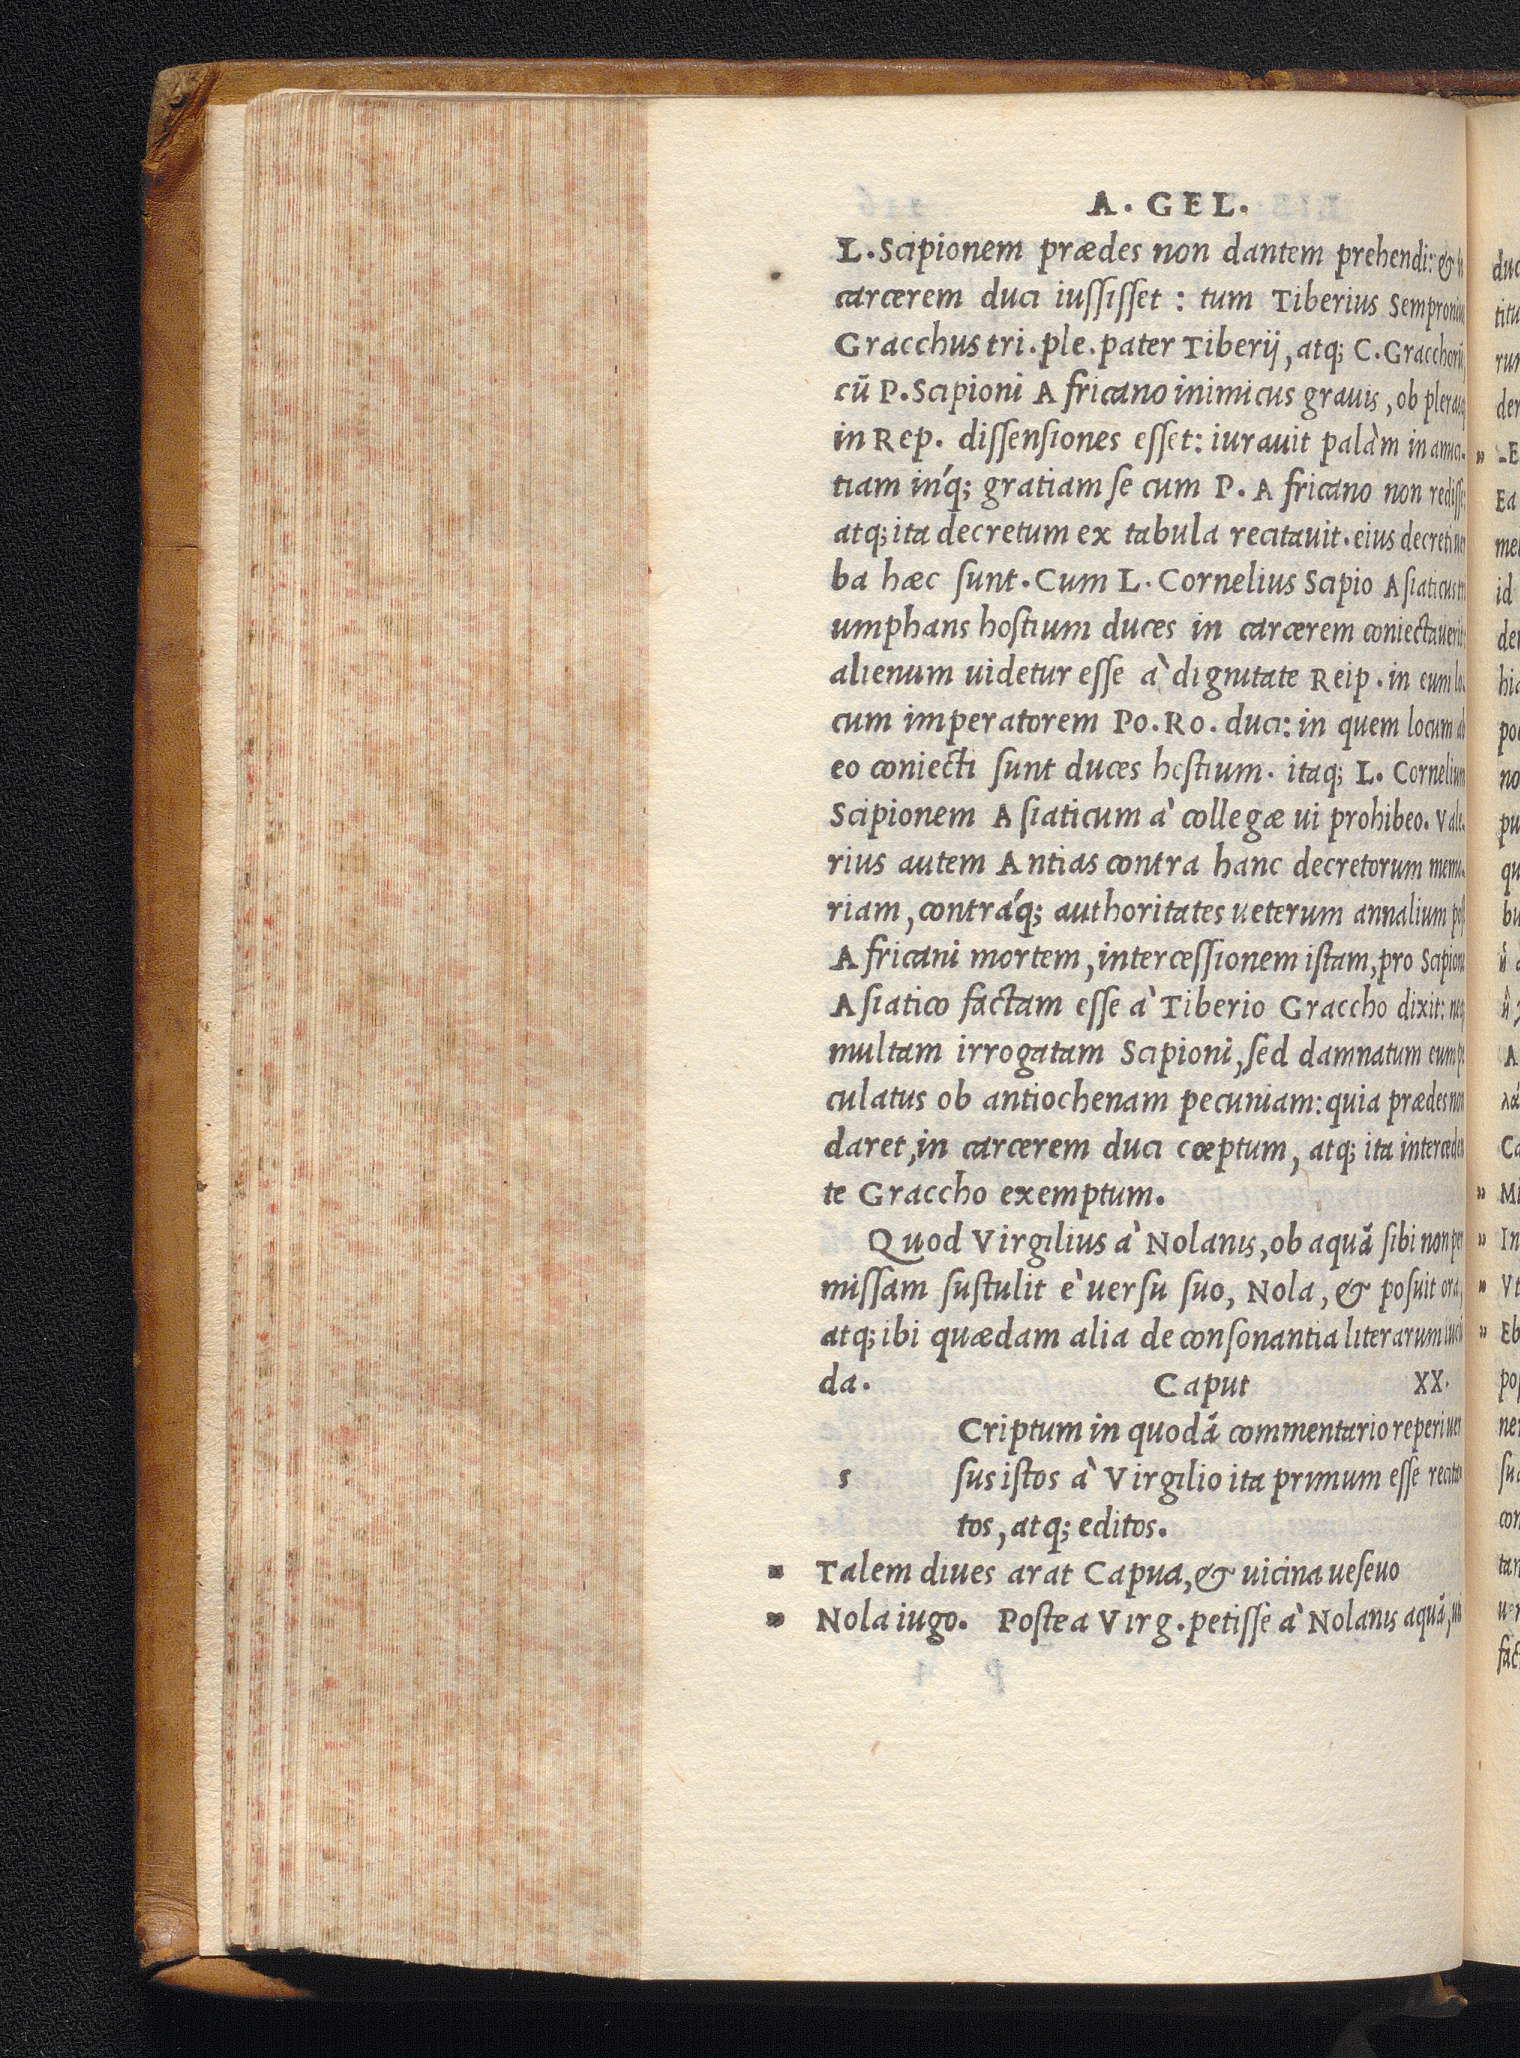 A. GEL.
L. Scipionem prædes non dantem prehendi: &
carcerem duci iuſſiſſet : tum Tiberius Sempronius
Gracchus tri. ple. pater Tiberij, atq; C. Gracchorũ,
cũ P. Scipioni Africano inimicus grauis, ob pleraſq;
in Rep. diſſenſiones eſſet: iurauit palàm in amici-
tiam inq́; gratiam ſe cum P. Africano non rediſſe:
atq; ita decretum ex tabula recitauit. eius decreti uer
ba hæc ſunt. Cum L. Cornelius Scipio Aſiaticus tri
umphans hoſtium duces in carcerem coniectauerit:
alienum uidetur eſſe à dignitate Reip. in eum lo-
cum imperatorem Po. Ro. duci: in quem locum ab
eo coniecti ſunt duces hoſtium. itaq; L. Cornelium
Scipionem Aſiaticum à collegæ ui prohibeo. Vale-
rius autem Antias contra hanc decretorum memo-
riam, contráq; authoritates ueterum annalium poſt
Africani mortem, interceſſionem iſtam, pro Scipione
Aſiatico factam eſſe à Tiberio Graccho dixit: neq;
multam irrogatam Scipioni, ſed damnatum eum pe
culatus ob antiochenam pecuniam: quia prædes non
daret, in carcerem duci cœptum, atq; ita interceden
te Graccho exemptum.
Quod Virgilius à Nolanis, ob aquã ſibi non per
miſſam ſuſtulit è uerſu ſuo, Nola, & poſuit ora,
atq; ibi quædam alia de conſonantia literarum iucũ
da. Caput XX.
Criptum in quodã commentario reperi uer
s ſus iſtos à Virgilio ita primum eſſe recita
tos, atq; editos.
" Talem diues arat Capua, & uicina ueſeuo
" Nola iugo. Poſtea Virg. petiſſe à Nolanis aquã, uti